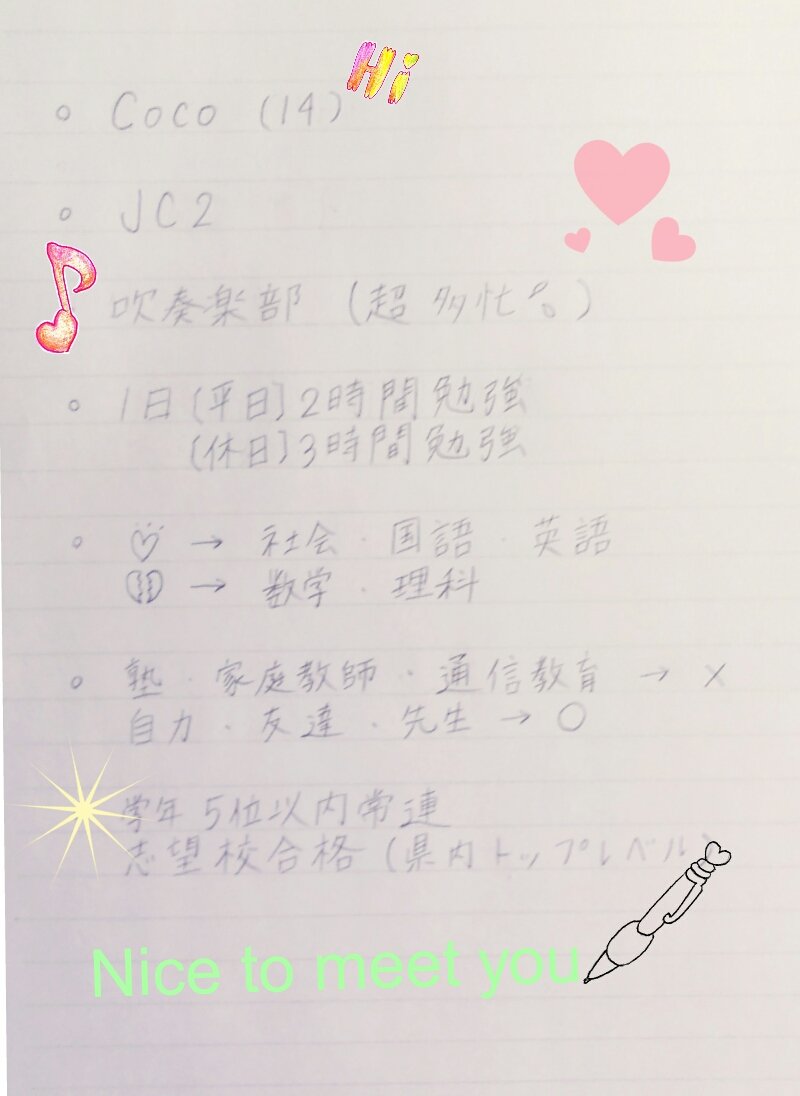 Hi
。 Coco (14)
。 JC2
吹奏楽部 (超多忙。)
。 1日[平日]2時間勉強
[休日]3時間勉強
。 ♡ → 社会・国語・英語
💔 → 数学・理科
。 塾・家庭教師・通信教育 → ×
自力・友達・先生 → ○
学年5位以内常連
志望校合格(県内トップレベル)
Nice to meet you